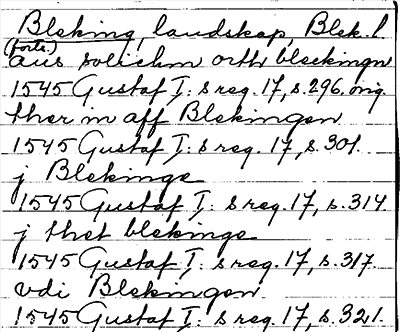 Bleking, landskap, Blek. l.
(forts.)
aus solichm orth bleckingn
1545 Gustaf I:s reg. 17, s. 296. orig.
ther in aff Blekingen
1545 Gustaf I:s reg. 17, s. 301.
j Blekinge
1545 Gustaf I:s reg. 17, s. 314.
j thet blekinge
1545 Gustaf I:s reg. 17, s. 317.
vdi Blekingen.
1545 Gustaf I:s reg. 17, s. 321.